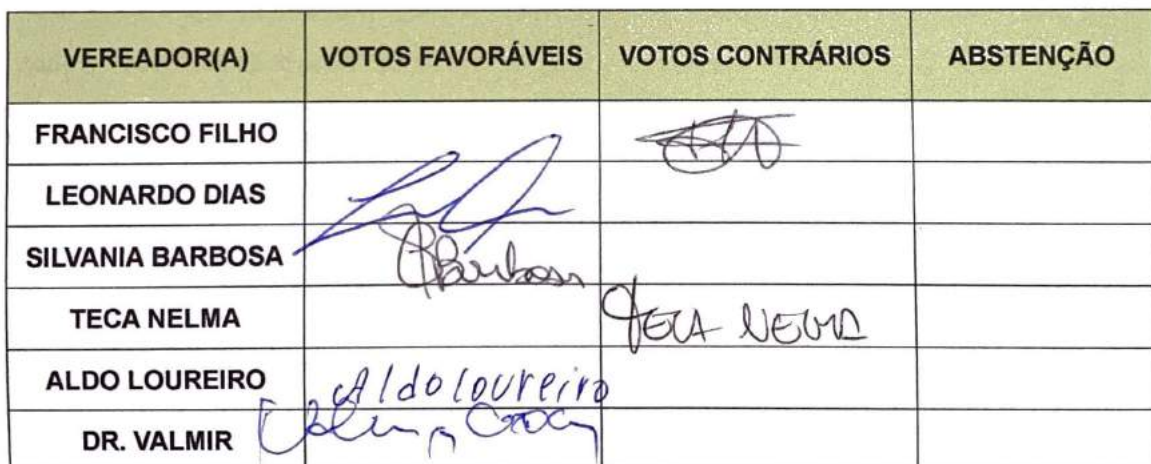 VEREADOR(A) VOTOS FAVORÁVEIS VOTOS CONTRÁRIOS ABSTENÇÃO
FRANCISCO FILHO
LEONARDO DIAS
SILVANIA BARBOSA SBarbosa
TECA NELMA TECA NELMA
ALDO LOUREIRO Aldo loureiro
DR. VALMIR